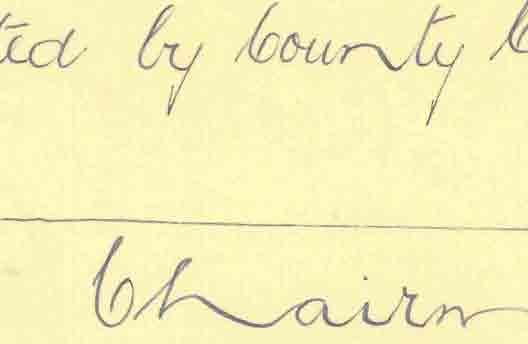 ted by County C
Chairm